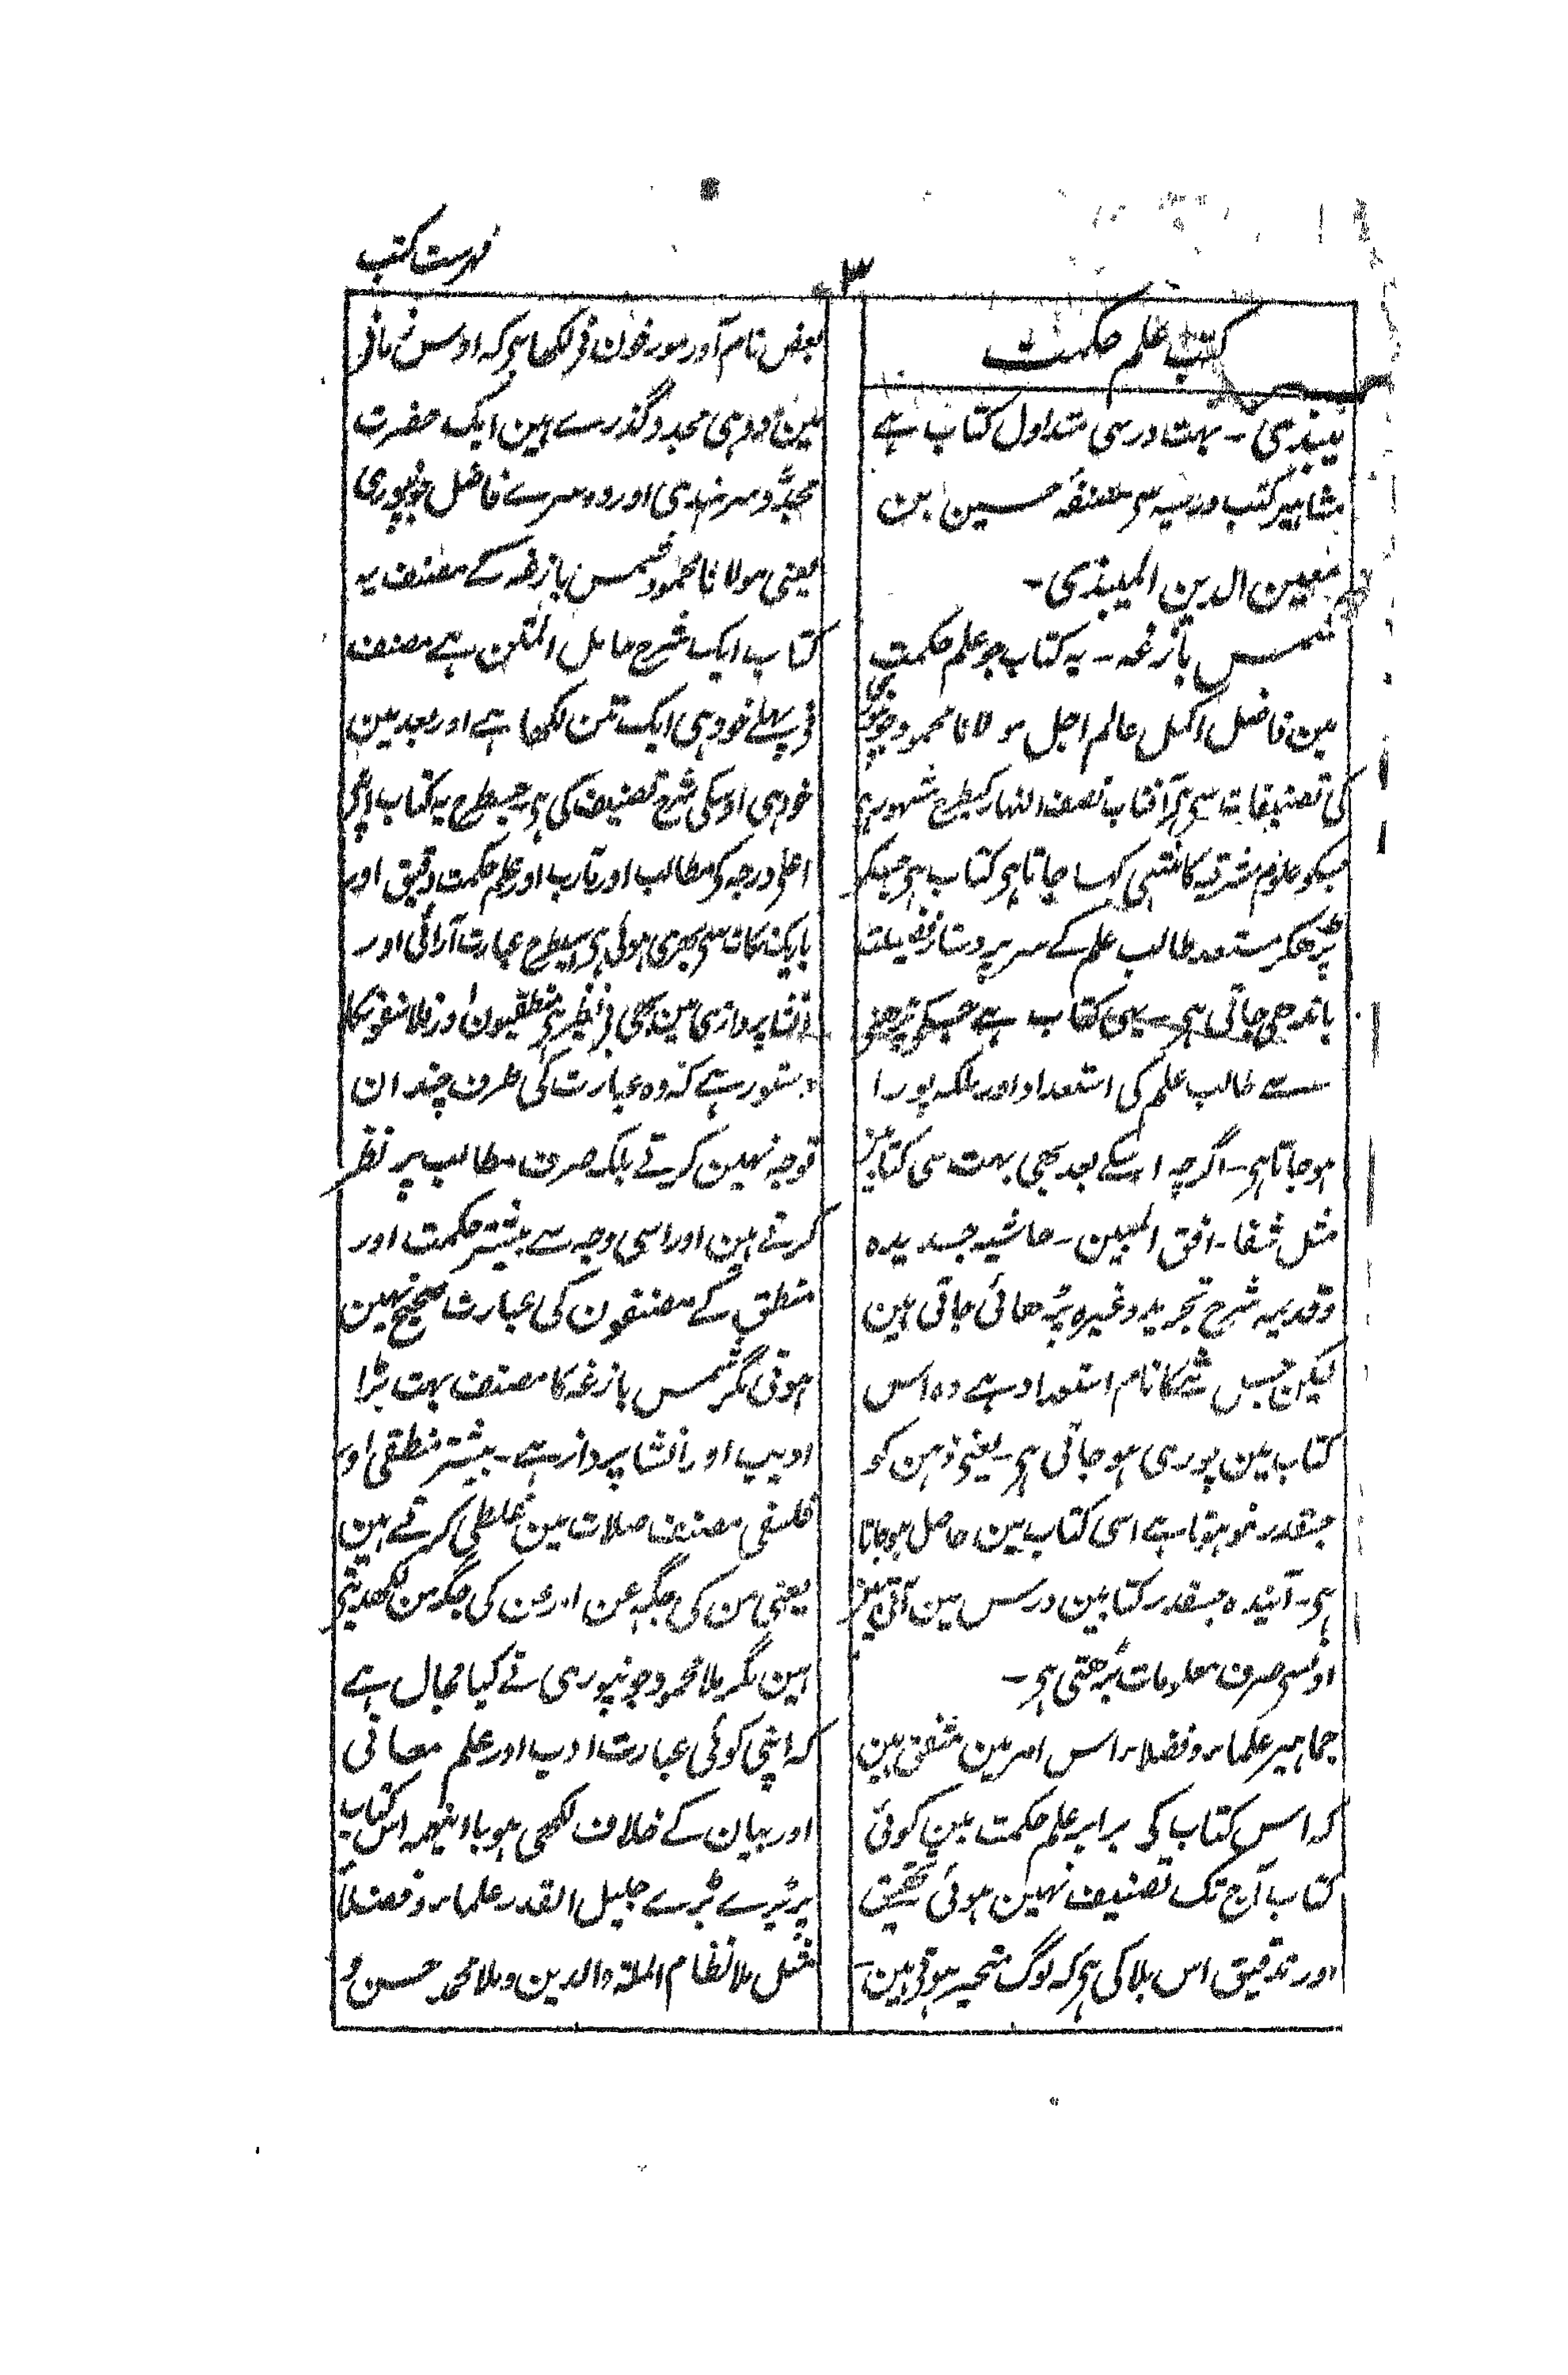 فہرست کتب
۳
کتب علم حکمت
میبذی - بہت درسی متداول کتاب ہے
مشاہیر کتب درسیہ سی مصنفہ حسین بن
معین الدین المیبذی -
شمس بازغہ - یہ کتاب جو علم حکمت
مین فاضل اکمل عالم اجل مولانا محمود جونپوری
کی تصنیفات سی ہی آفتاب نصف النہار کیطرح مشہور ہی
جسکو علوم مشرقیہ کا منتہی کہا جاتا ہی کتاب ہی جسکو
پڑھکر مستعد طالب علم کے سر پر دستار فضیلت
باندھی جاتی ہی - یہی کتاب ہے جسکی پڑھنی
سے طالب علم کی استعداد اور ملکہ پورا
ہو جاتا ہی - اگرچہ اسکے بعد بھی بہت سی کتابین
مثل شفا - افق المبین - حاشیہ جدیدہ
و قدیمہ شرح تجرید وغیرہ پڑھائی جاتی ہین
لیکن جس شے کا نام استعداد ہے وہ اس
کتاب مین پوری ہو جاتی ہی - یعنی ذہن کو
جسقدر نمو ہوتا ہے اسی کتاب مین حاصل ہو جاتا
ہی - آیندہ جسقدر کتابین درس مین آتی ہین
اونسی صرف معلومات بڑھتی ہی -
جماہیر علماء و فضلاء اس امر مین متفق ہین
کہ اس کتاب کی برابر علم حکمت مین کوئی
کتاب آج تک تصنیف نہین ہوئی تحقیق
اور تدقیق اس بلا کی ہی کہ لوگ متحیر ہوتی ہین -
بعض نام آور مورخون نی لکھا ہی کہ اوس زمانی
مین دو ہی مجدد گذرے ہین ایک حضرت
مجدد سرہندی اور دوسرے فاضل جونپوری
یعنی مولانا محمود شمس بازغہ کے مصنف یہ
کتاب ایک شرح حامل المتن ہے مصنف
نی پہلے خود ہی ایک متن لکھا ہے اور بعد مین
خود ہی اوسکی شرح تصنیف کی ہی جسطرح یہ کتاب اپنی
اعلی درجہ کو مطالب اور مآرب اور علم حکمت دقیق اور
باریک نکات سی بھری ہوئی ہی اسیطرح عبارت آرائی اور
انشا پردازی مین بھی بی نظیر ہی منطقیون اور فلاسفونکا
دستور ہے کہ وہ عبارت کی طرف چندان
توجہ نہین کرتے بلکہ صرف مطالب پر نظر
کرتے ہین اور اسی وجہ سے بیشتر حکمت اور
منطق کے مصنفون کی عبارت صحیح نہین
ہوتی مگر شمس بازغہ کا مصنف بہت بڑا
ادیب اور انشا پرداز ہے - بیشتر منطقی اور
فلسفی مصنف صلات مین غلطی کرتے ہین
یعنی من کی جگہ عن اور عن کی جگہ من لکھدیتی
ہین مگر ملا محمود جونپوری نے کیا مجال ہے
کہ اپنی کوئی عبارت ادب اور علم معانی
اور بیان کے خلاف لکھی ہو با اینہمہ اس کتاب
پر بڑے بڑے جلیل القدر علماء و فضلاء
مثل ملا نظام الملۃ والدین و ملا محمد حسن و